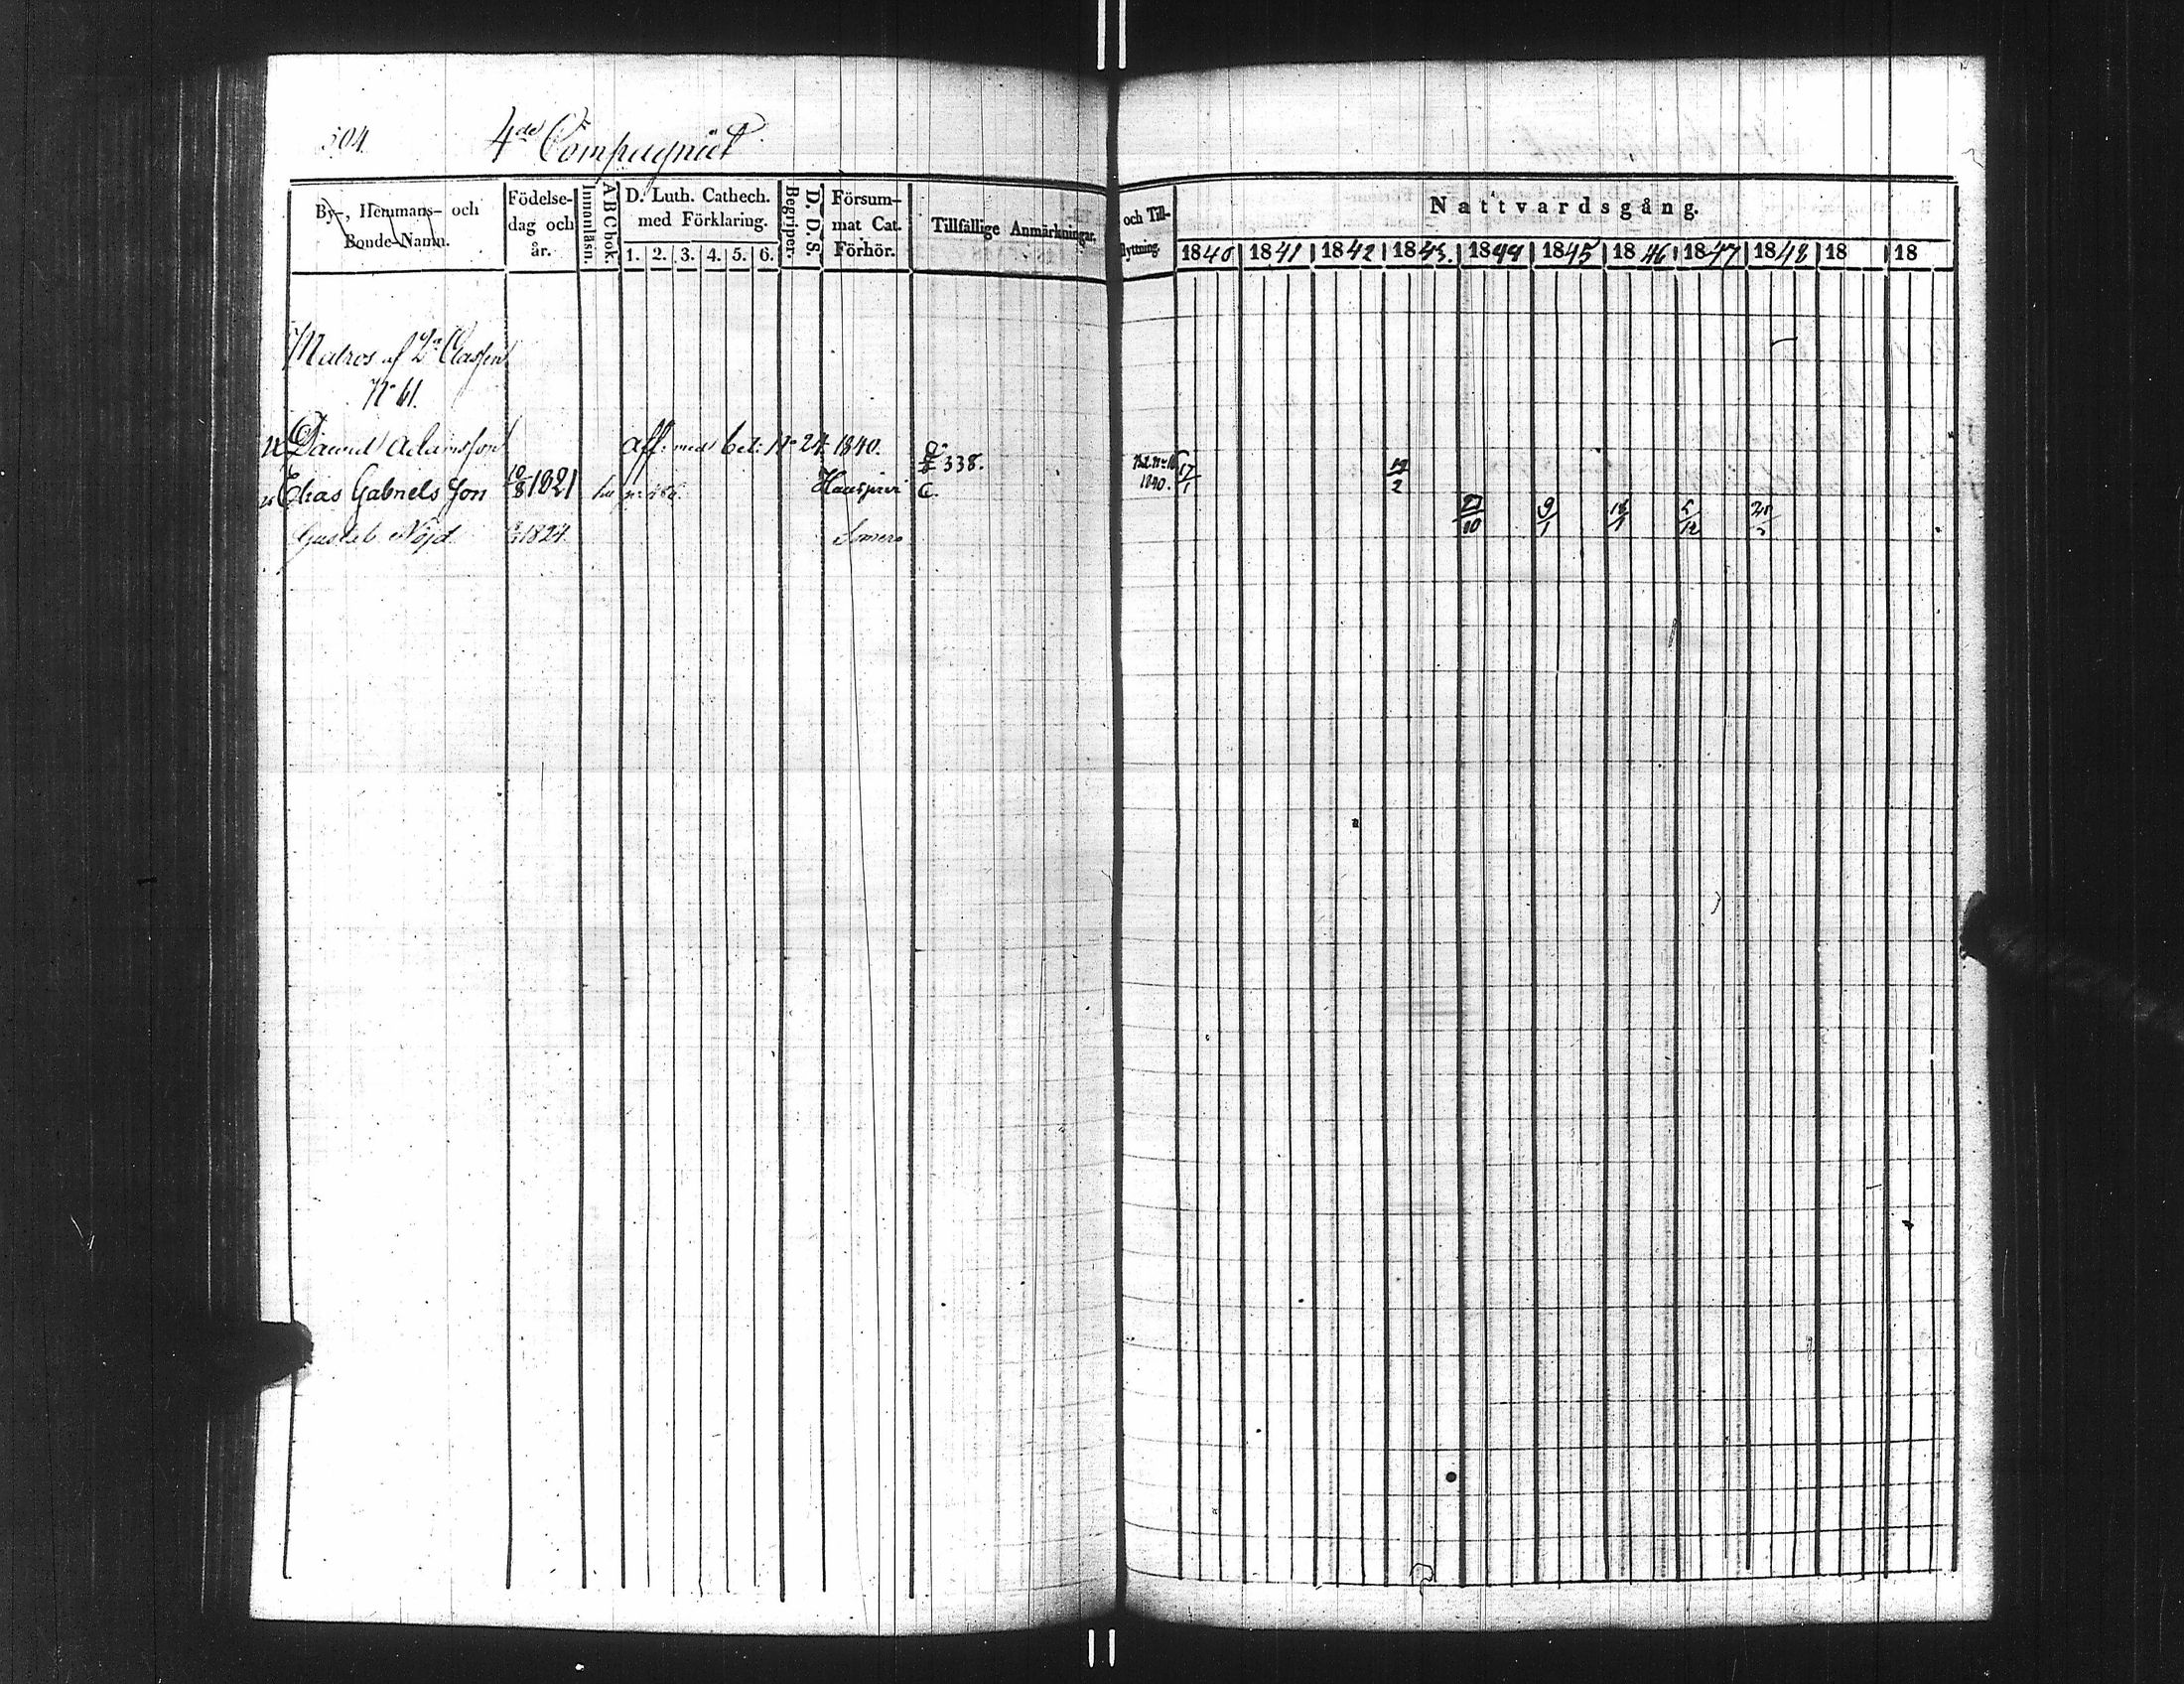 304.
4de Compagniet
By-, Hemmans- och
Bonde-Namn.
Födelse-
dag och
år.
Innanläsn.
ABCbok.
D. Luth. Cathech.
med Förklaring.
1. 2. 3. 4. 5. 6.
Begriper.
D. D. S.
Försum-
mat Cat.
Förhör.
Tillfällige Anmärkningar,
och Till-
flyttning.
Nattvardsgång.
1840 1841 1842 1843. 1844 1845 1846 1847 1848 18 18
Matros af 2a Classen
No 61.
David Adamsson aff. med bet. No 24 1840.
338.
1840. 17/1 19/2
Elias Gabriels Son 10/8 1821 Hausjervi C.
21/10 9/1 18/1 5/12
Gustab Nöjd 1824 Somero